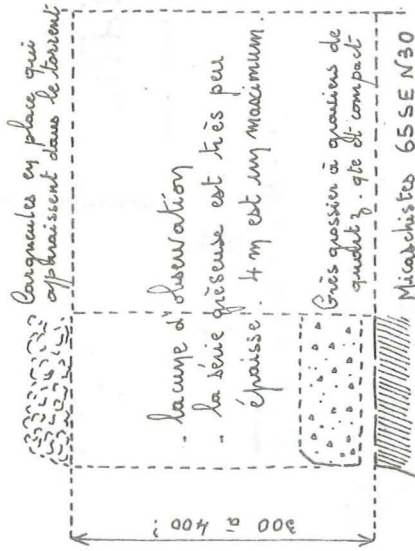 Cargneules en place qui
apparaissent dans le torrent
- lacune d'observation
- la série gréseuse est très peu
épaisse. 4 m est un maximum.
Grès grossier à graviers de
quartz. qte et compact
Micaschistes 65 SE N 30
300 à 400 ?